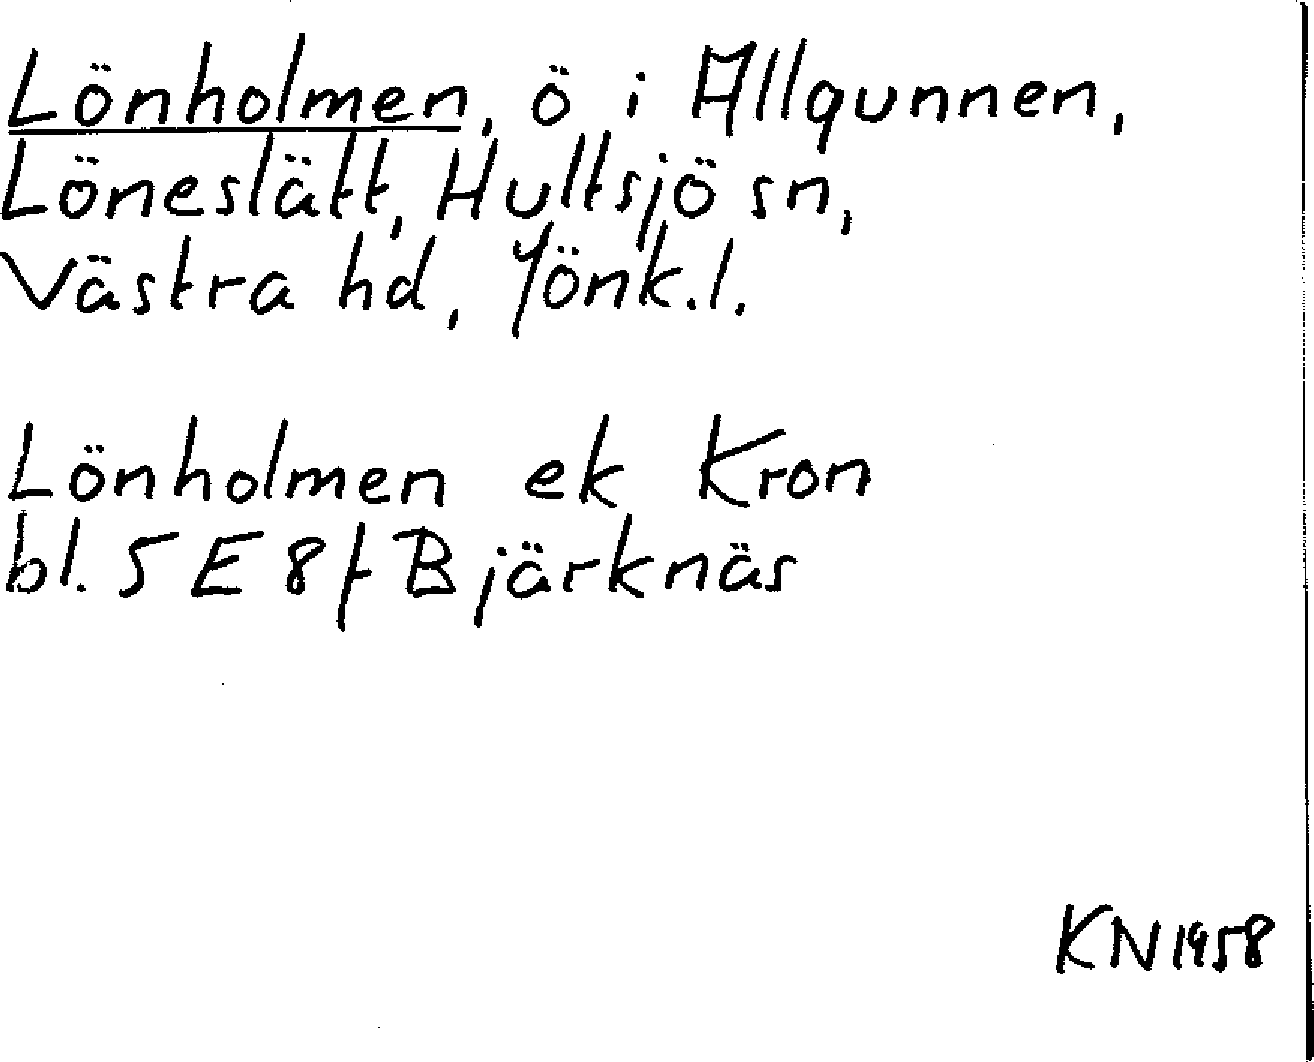 Lönholmen, ö i Allgunnen,
Löneslätt, Hultsjö sn,
Västra hd, Jönk.l.
Lönholmen ek Kron
bl. 5 E 8 f Bjärknäs
KN 1958